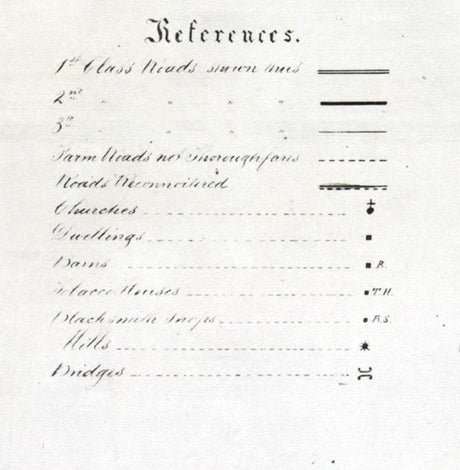 References.
1st Class Roads shown thus
2nd " " "
3d " " "
Farm Roads not Thoroughfares
Roads Reconnoitered
Churches
Dwellings
Barns B.
Tobacco Houses T.H.
Blacksmith Shops B.S.
Mills
Bridges